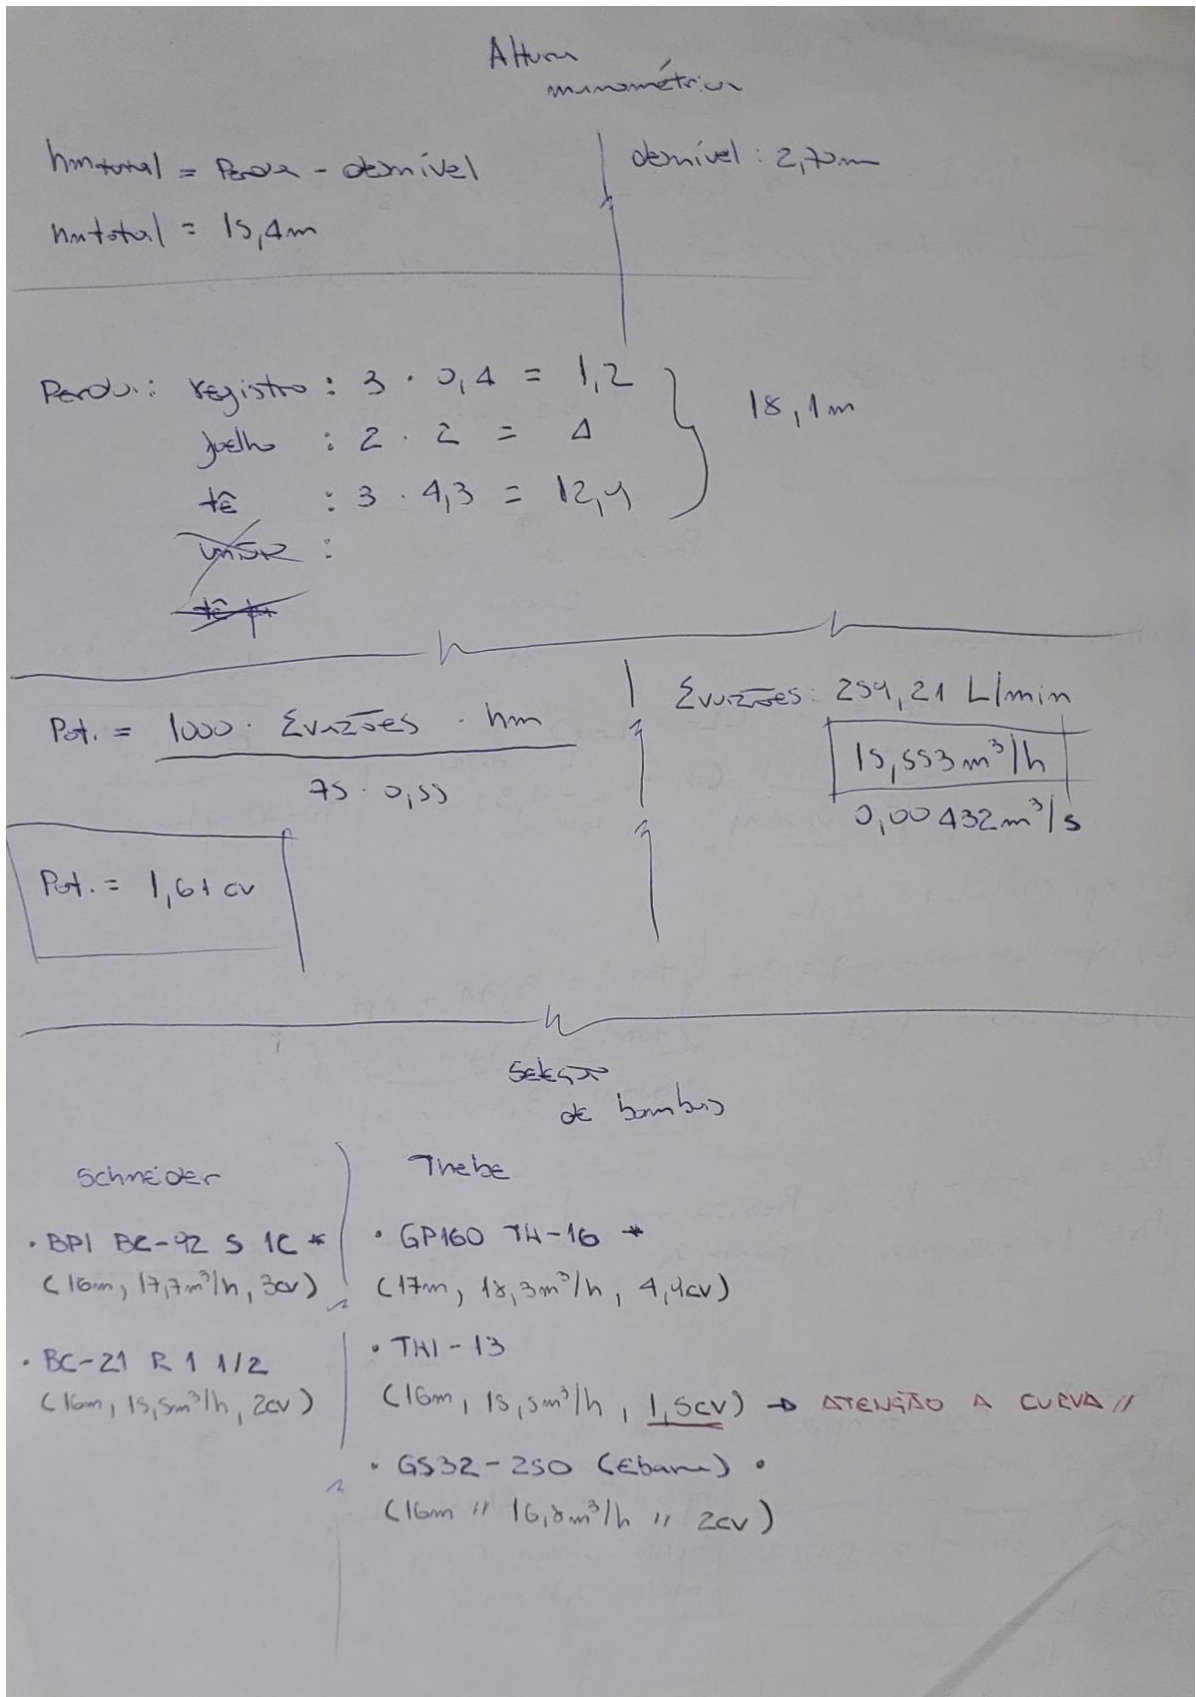 Altura
manométrica
hmtotal = Perda - desnível
desnível : 2,70m
hmtotal = 15,4m
Perda: registro : 3 · 0,4 = 1,2
joelho : 2 · 2 = 4
18,1m
tê : 3 · 4,3 = 12,9
união :
Pot. = 1000 · Σvazões · hm
75 · 0,55
Σvazões: 259,21 L/min
15,553 m³/h
0,00432 m³/s
Pot. = 1,61 cv
Seleção
de bombas
Schneider
Thebe
• BPI BC-92 S 1C *
(16m, 17,7m³/h, 3cv)
• BC-21 R 1 1/2
(16m, 15,5m³/h, 2cv)
• GP160 TH-16 *
(17m, 18,3m³/h, 4,4cv)
• THI-13
(16m, 15,5m³/h, 1,5cv) → ATENÇÃO A CURVA //
• GS32-250 (Ebara) •
(16m // 16,8m³/h // 2cv)